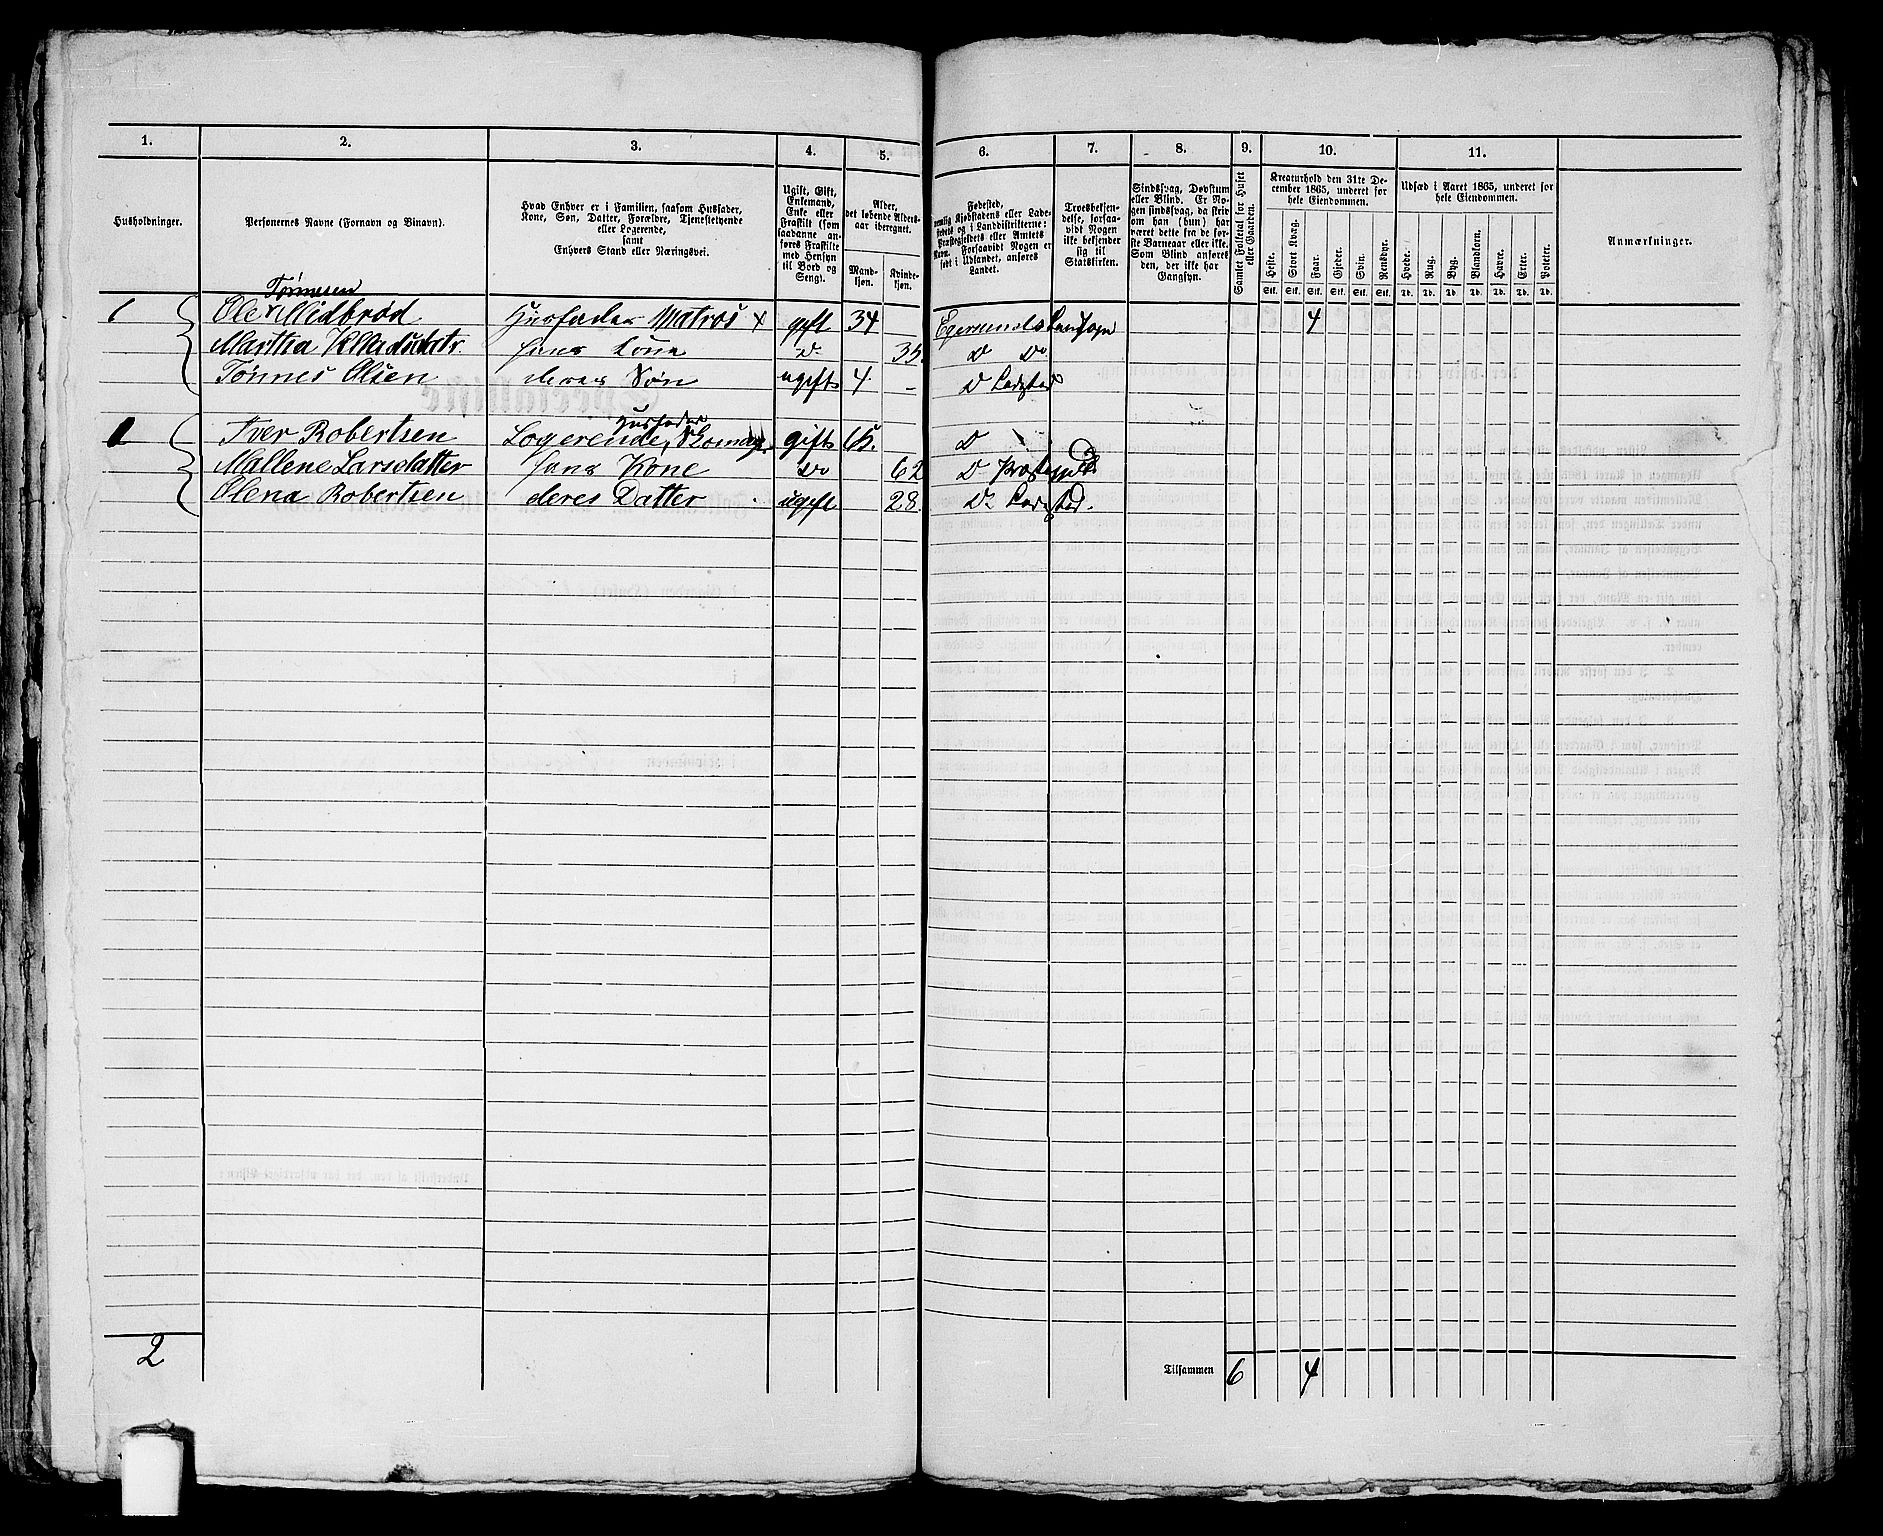 1. 2. 3. 4. 5. 6. 7. 8. 9. 10. 11.
Husholdninger.
Personernes Navne (Fornavn og Binavn).
Hvad Enhver er i Familien, saasom Husfader,
Kone, Søn, Datter, Forældre, Tjenestetyende
eller Logerende,
samt
Enhvers Stand eller Næringsvei.
Ugift, Gift,
Enkemand,
Enke eller
Fraskilt (som
saadanne an-
føres Fraskilte
med Hensyn
til Bord og
Seng).
Alder,
det løbende Alders-
aar iberegnet.
Mand-
kjøn.
Kvinde-
kjøn.
Fødested,
nemlig Kjøbstadens eller Lade-
stedets og i Landdistrikterne:
Præstegjeldets eller Amtets
Navn. Forsaavidt Nogen er
født i Udlandet, anføres
Landet.
Troesbekjen-
delse, forsaa-
vidt Nogen
ikke bekjender
sig til
Statskirken.
Sindssvag, Døvstum
eller Blind. Er No-
gen sindssvag, da skriv
om han (hun) har
været dette fra de før-
ste Barneaar eller ikke.
Som Blind anføres
den, der ikke har
Gangsyn.
Samlet Folketal for Huset
eller Gaarden.
Kreaturhold den 31te De-
cember 1865, underet for
hele Eiendommen.
Heste. Stort Kvæg. Faar. Gjeder. Svin. Rensdyr.
Stk. Stk. Stk. Stk. Stk. Stk.
Udsæd i Aaret 1865, underet for
hele Eiendommen.
Hvede. Rug. Byg. Blandkorn. Havre. Erter. Poteter.
Td. Td. Td. Td. Td. Td. Td.
Anmærkninger.
Tønnesen
1 Ole Midbrød Husfader Matros x gift 34 Egersunds Landsogn 4
Martha hans Kone Do 35. D Do
Tønnes Olsen deres Søn ugift 4. - D Ladested
Husfader
1 Iver Robertsen Logerende, Skomag. gift D
Mallene Larsdatter hans Kone Do 62 D Præstegjeld
Olena Robertsen deres Datter ugift 28. D Ladested.
2 Tilsammen 6 4